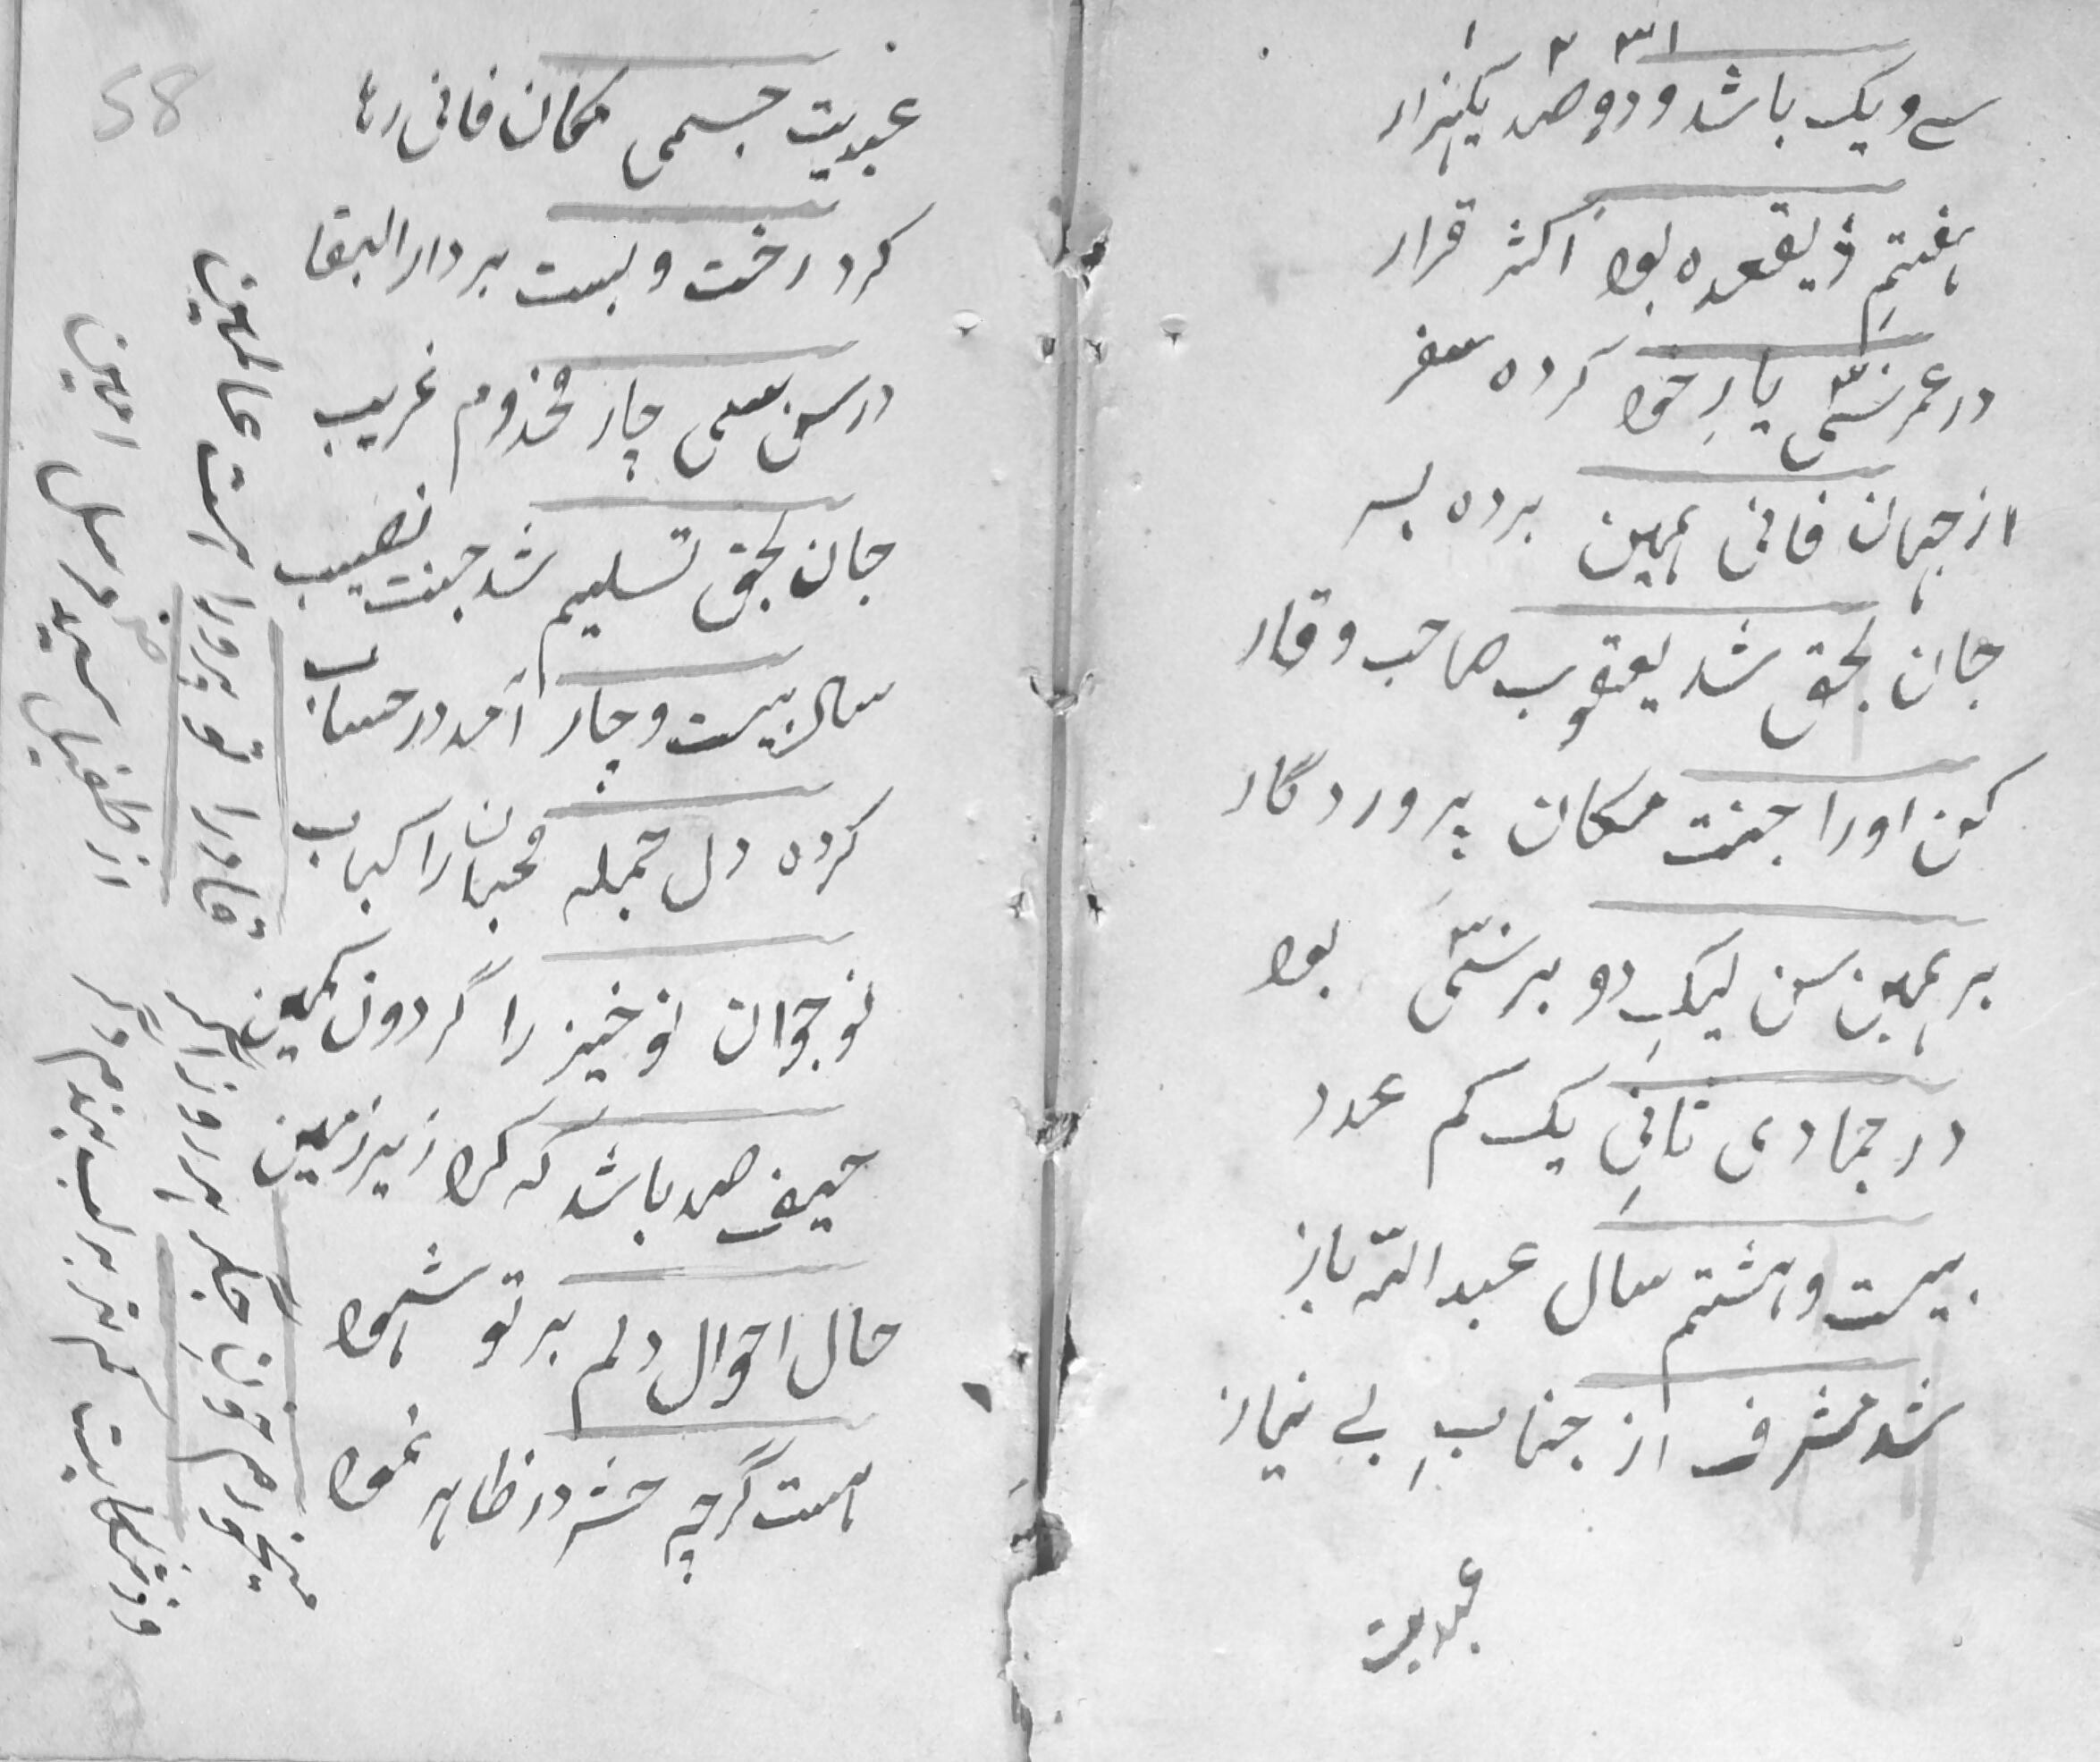 ۱ ۲ ۳۱
سے و یک باشد و دو صد یکہزار
ہفتمِ ذیقعدہ بود اکثر قرار
در عمر سّی یارِ خود کردہ سفر
از جہان فانی ہمین بردہ بسر
جان بحق شد یعقوب صاحب وقار
کن اورا جنت مکان پروردگار
بر ہمین سن لیک دو بر سّی بود
در جمادی ثانی یک کم عدد
بیست و ہشتم سال عبد اللہ باز
شد مشرف از جنابِ بے نیاز
عبدیت
58
عبدیت جسمی مکان فانی رہا
کرد رخت و بست بر دار البقا
در سن سی چار مخذوم غریب
جان بحق تسلیم شد جنت نصیب
سال بیست و چار آمد در حساب
کردہ دل جملہ محبان را کباب
نوجوان نوخیز را گردون کمین
حیف صد باشد کہ کرد زیر زمین
حال احوال دلم بر تو شہود
ہست گرچہ خش در ظاہر نمود
میخورم خونِ جگر
قادرا
از طفیل سید مرسل امین